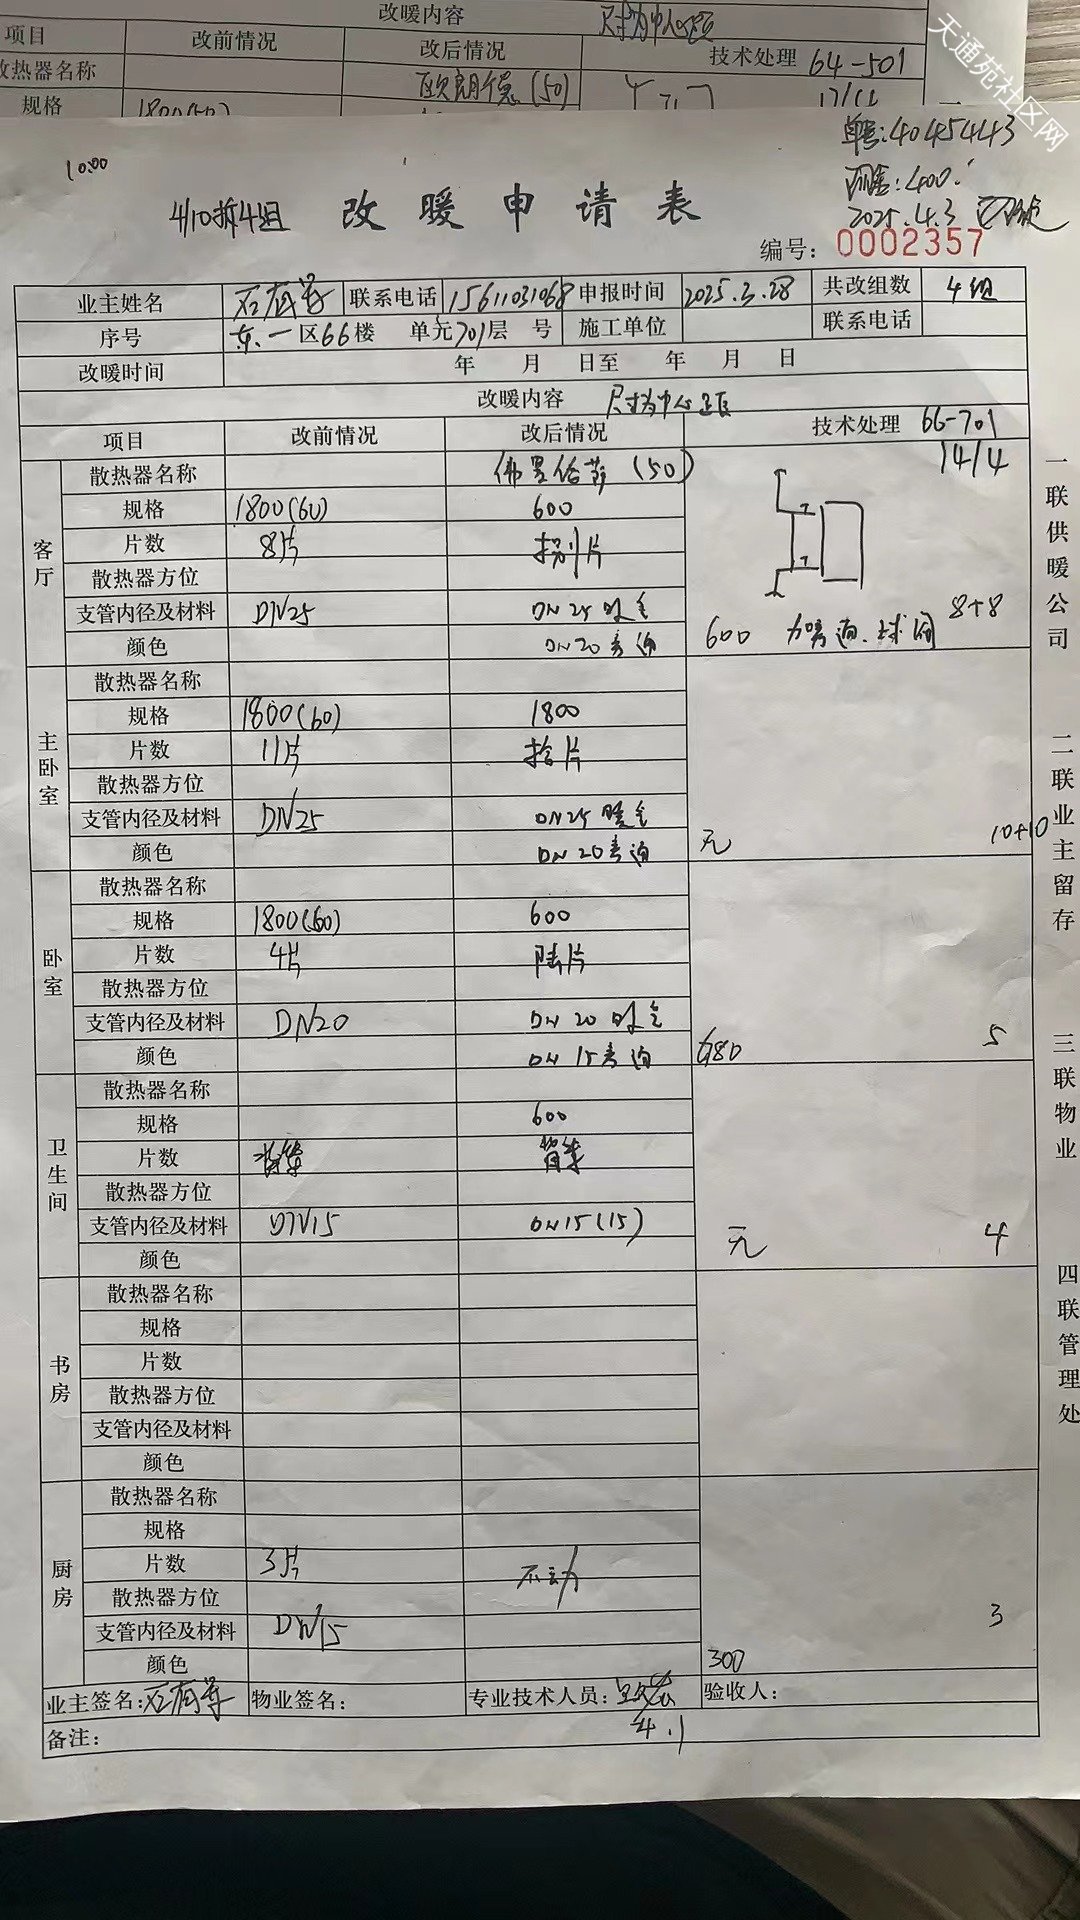 改暖内容 尺寸为中心距
项目 改前情况 改后情况 技术处理 64-501
散热器名称 (50)
规格 1800(60)
天通苑社区网
10:00
单号:40454443
4/10拆4组 改暖申请表
:400.
2025.4.3
编号: 0002357
业主姓名 联系电话 15611031068 申报时间 2025.3.28 共改组数 4组
序号 东一区66楼 单元701层 号 施工单位 联系电话
改暖时间 年 月 日至 年 月 日
改暖内容 尺寸为中心距
项目 改前情况 改后情况 技术处理 66-701
14/4
客厅
散热器名称 (50)
规格 1800(60) 600
片数 8片 捌片
散热器方位
支管内径及材料 DN25 DN25
颜色 DN20
600 球阀 8+8
主卧室
散热器名称
规格 1800(60) 1800
片数 11片 拾片
散热器方位
支管内径及材料 DN25 DN25
颜色 DN20
无 10+10
卧室
散热器名称
规格 1800(60) 600
片数 4片 陆片
散热器方位
支管内径及材料 DN20 DN20
颜色 DN15
680 5
卫生间
散热器名称
规格 600
片数 背篓
散热器方位
支管内径及材料 DN15 DN15(15)
颜色
无 4
书房
散热器名称
规格
片数
散热器方位
支管内径及材料
颜色
厨房
散热器名称
规格
片数 3片 不动
散热器方位
支管内径及材料 DN15
颜色
300 3
业主签名: 物业签名: 专业技术人员: 验收人:
4.1
备注:
一联供暖公司
二联业主留存
三联物业
四联管理处